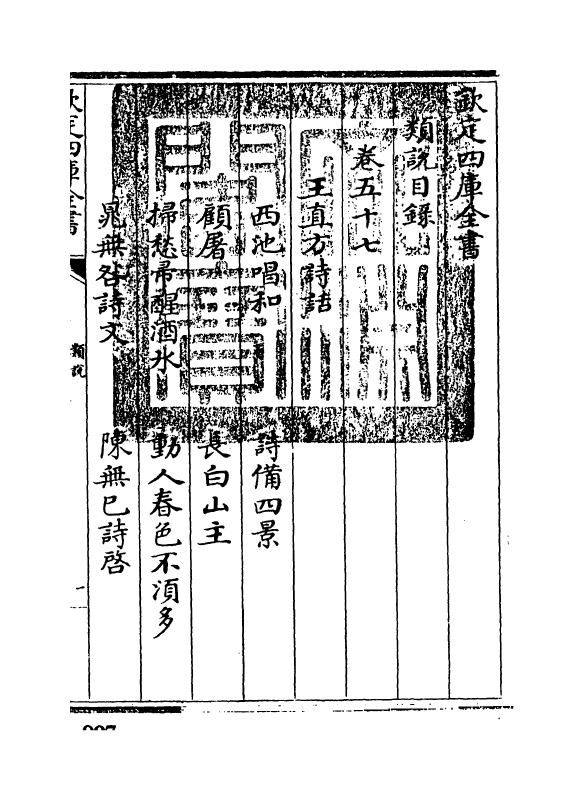 欽定四庫全書
類說目錄
卷五十七
王直方詩話
西池唱和
詩備四景
顧屠
長白山主
掃愁帚醒酒氷
動人春色不湏多
晁無咎詩文
陳無已詩啓
欽定四庫全書
類說